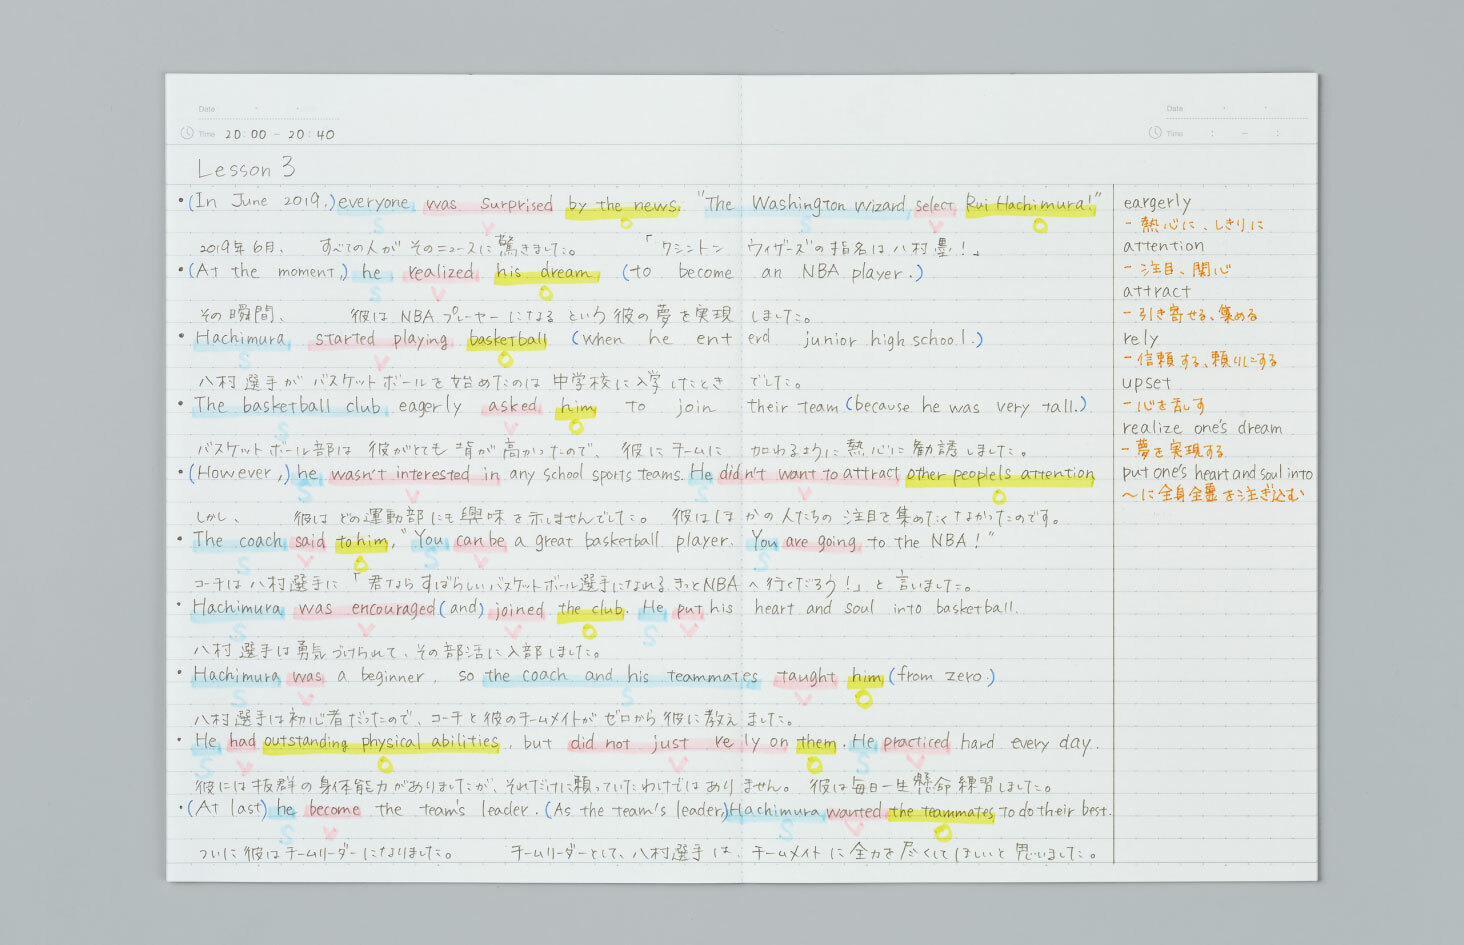 Date
Time 20:00 - 20:40
Date
Time : - :
Lesson 3
• (In June 2019,) everyone was surprised by the news. "The Washington Wizard select Rui Hachimura!"
S V O S V O
2019年6月、 すべての人が そのニュースに驚きました。 「ワシントン ウィザーズの指名は八村塁!」
• (At the moment,) he realized his dream (to become an NBA player.)
S V O
その瞬間、 彼は NBAプレーヤーになるという彼の夢を実現しました。
• Hachimura started playing basketball (when he enterd junior high school.)
S V O
八村選手が バスケットボールを始めたのは 中学校に入学したときでした。
• The basketball club eagerly asked him to join their team (because he was very tall.)
S V O
バスケットボール部は 彼がとても背が高かったので、 彼にチームに 加わるように熱心に勧誘しました。
• (However,) he wasn't interested in any school sports teams. He didn't want to attract other people's attention
S V S V O
しかし、 彼はどの運動部にも興味を示しませんでした。 彼はほかの人たちの注目を集めたくなかったのです。
• The coach said to him, "You can be a great basketball player. You are going to the NBA!"
S V O S V S V
コーチは八村選手に「君ならすばらしいバスケットボール選手になれる、きっとNBAへ行くだろう!」と言いました。
• Hachimura was encouraged (and) joined the club. He put his heart and soul into basketball.
S V V O S V
八村選手は勇気づけられて、その部活に入部しました。
• Hachimura was a beginner, so the coach and his teammates taught him (from zero.)
S V S V O
八村選手は初心者だったので、コーチと彼のチームメイトがゼロから彼に教えました。
• He had outstanding physical abilities, but did not just rely on them. He practiced hard every day.
S V O V O S V
彼には抜群の身体能力がありましたが、それだけに頼っていたわけではありません。 彼は毎日一生懸命練習しました。
• (At last) he become the team's leader. (As the team's leader,) Hachimura wanted the teammates to do their best.
S V S V O
ついに彼はチームリーダーになりました。 チームリーダーとして、八村選手は、チームメイトに全力を尽くしてほしいと思いました。
eargerly
- 熱心に、しきりに
attention
- 注目、関心
attract
- 引き寄せる、集める
rely
- 信頼する、頼りにする
upset
- 心を乱す
realize one's dream
- 夢を実現する
put one's heart and soul into
〜に全身全霊を注ぎ込む